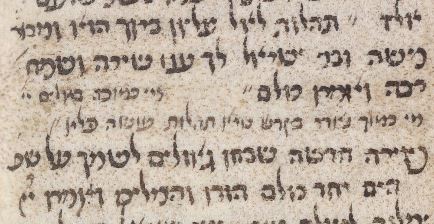 יולד תהלות לאל עליון ברוך הוא ומבר
משה ובני ישראל לך ענו שירה בשמחה
רבה ואמרו כולם מי כמוכה באלים יי
מי כמוך נאדר בקדש נורא תהלות עושה פלא
שירה חדשה שבחו גאולים לשמך על שפ
הים יחד כולם הודו והמליכו ואמרו יי